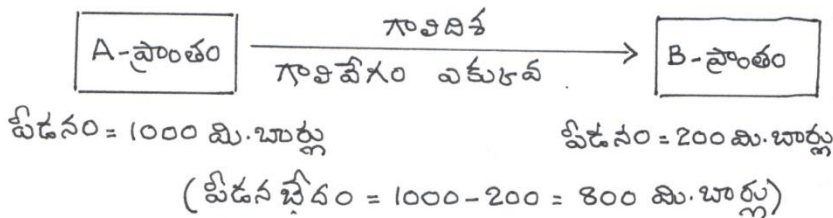 గాలిదిశ
A-ప్రాంతం
B-ప్రాంతం
గాలివేగం ఎకుకవ.
పీడనం = 1000 మి.బార్లు
పీడనం = 200 మి.బార్లు
(పీడన భేదం = 1000-200 = 800 మి.బార్లు)